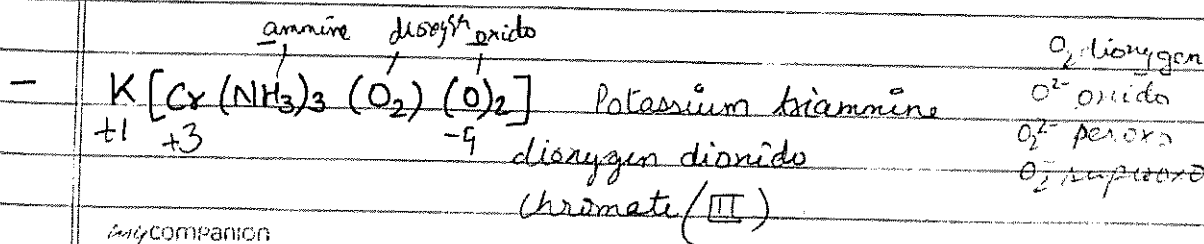 ammine dioxygen oxido
- K[Cr(NH₃)₃ (O₂) (O)₂] Potassium triammine
+1 +3 -4
dioxygen dioxido
chromate (III)
O₂ dioxygen
O²⁻ oxido
O₂²⁻ peroxo
O₂⁻ superoxo
mycompanion